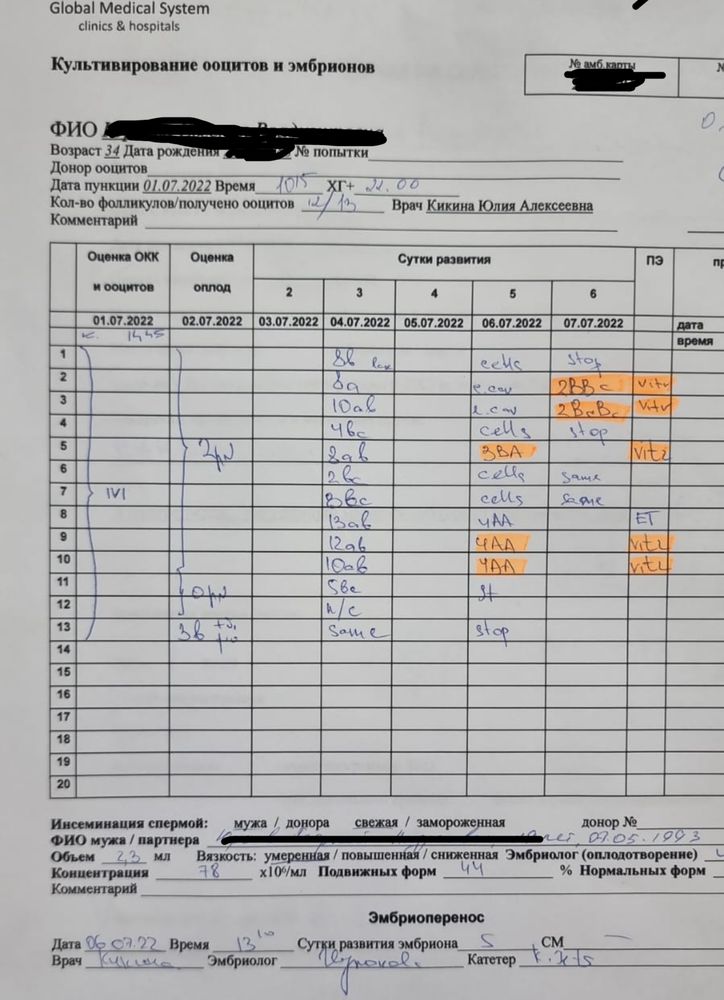 Global Medical System
clinics & hospitals
Культивирование ооцитов и эмбрионов
№ амб.карты
ФИО
Возраст 34 Дата рождения № попытки
Донор ооцитов
Дата пункции 01.07.2022 Время 10 15 ХГ+ 22.00
Кол-во фолликулов/получено ооцитов 12/13 Врач Кикина Юлия Алексеевна
Комментарий
Оценка ОКК и ооцитов Оценка оплод Сутки развития ПЭ
2 3 4 5 6
01.07.2022 02.07.2022 03.07.2022 04.07.2022 05.07.2022 06.07.2022 07.07.2022 дата
14 45 время
1 8b cells stop
2 8a e.cav 2BBc vitr
3 10ab e.cav 2BcBc vitr
4 4bc cells stop
5 2pn 8ab 3BA vitr
6 2bc cells same
7 IVI 3bc cells same
8 13ab 4AA ET
9 12ab 4AA vitr
10 10ab 4AA vitr
11 0pn 5bc st
12 n/c
13 3в same stop
14
15
16
17
18
19
20
Инсеминация спермой: мужа / донора свежая / замороженная донор №
ФИО мужа / партнера 07.05.1993
Объем 2,3 мл Вязкость: умеренная / повышенная / сниженная Эмбриолог (оплодотворение)
Концентрация 78 х10⁶/мл Подвижных форм 44 % Нормальных форм
Комментарий
Эмбриоперенос
Дата 06.07.22 Время 13 10 Сутки развития эмбриона 5 СМ —
Врач Кикина Эмбриолог Катетер